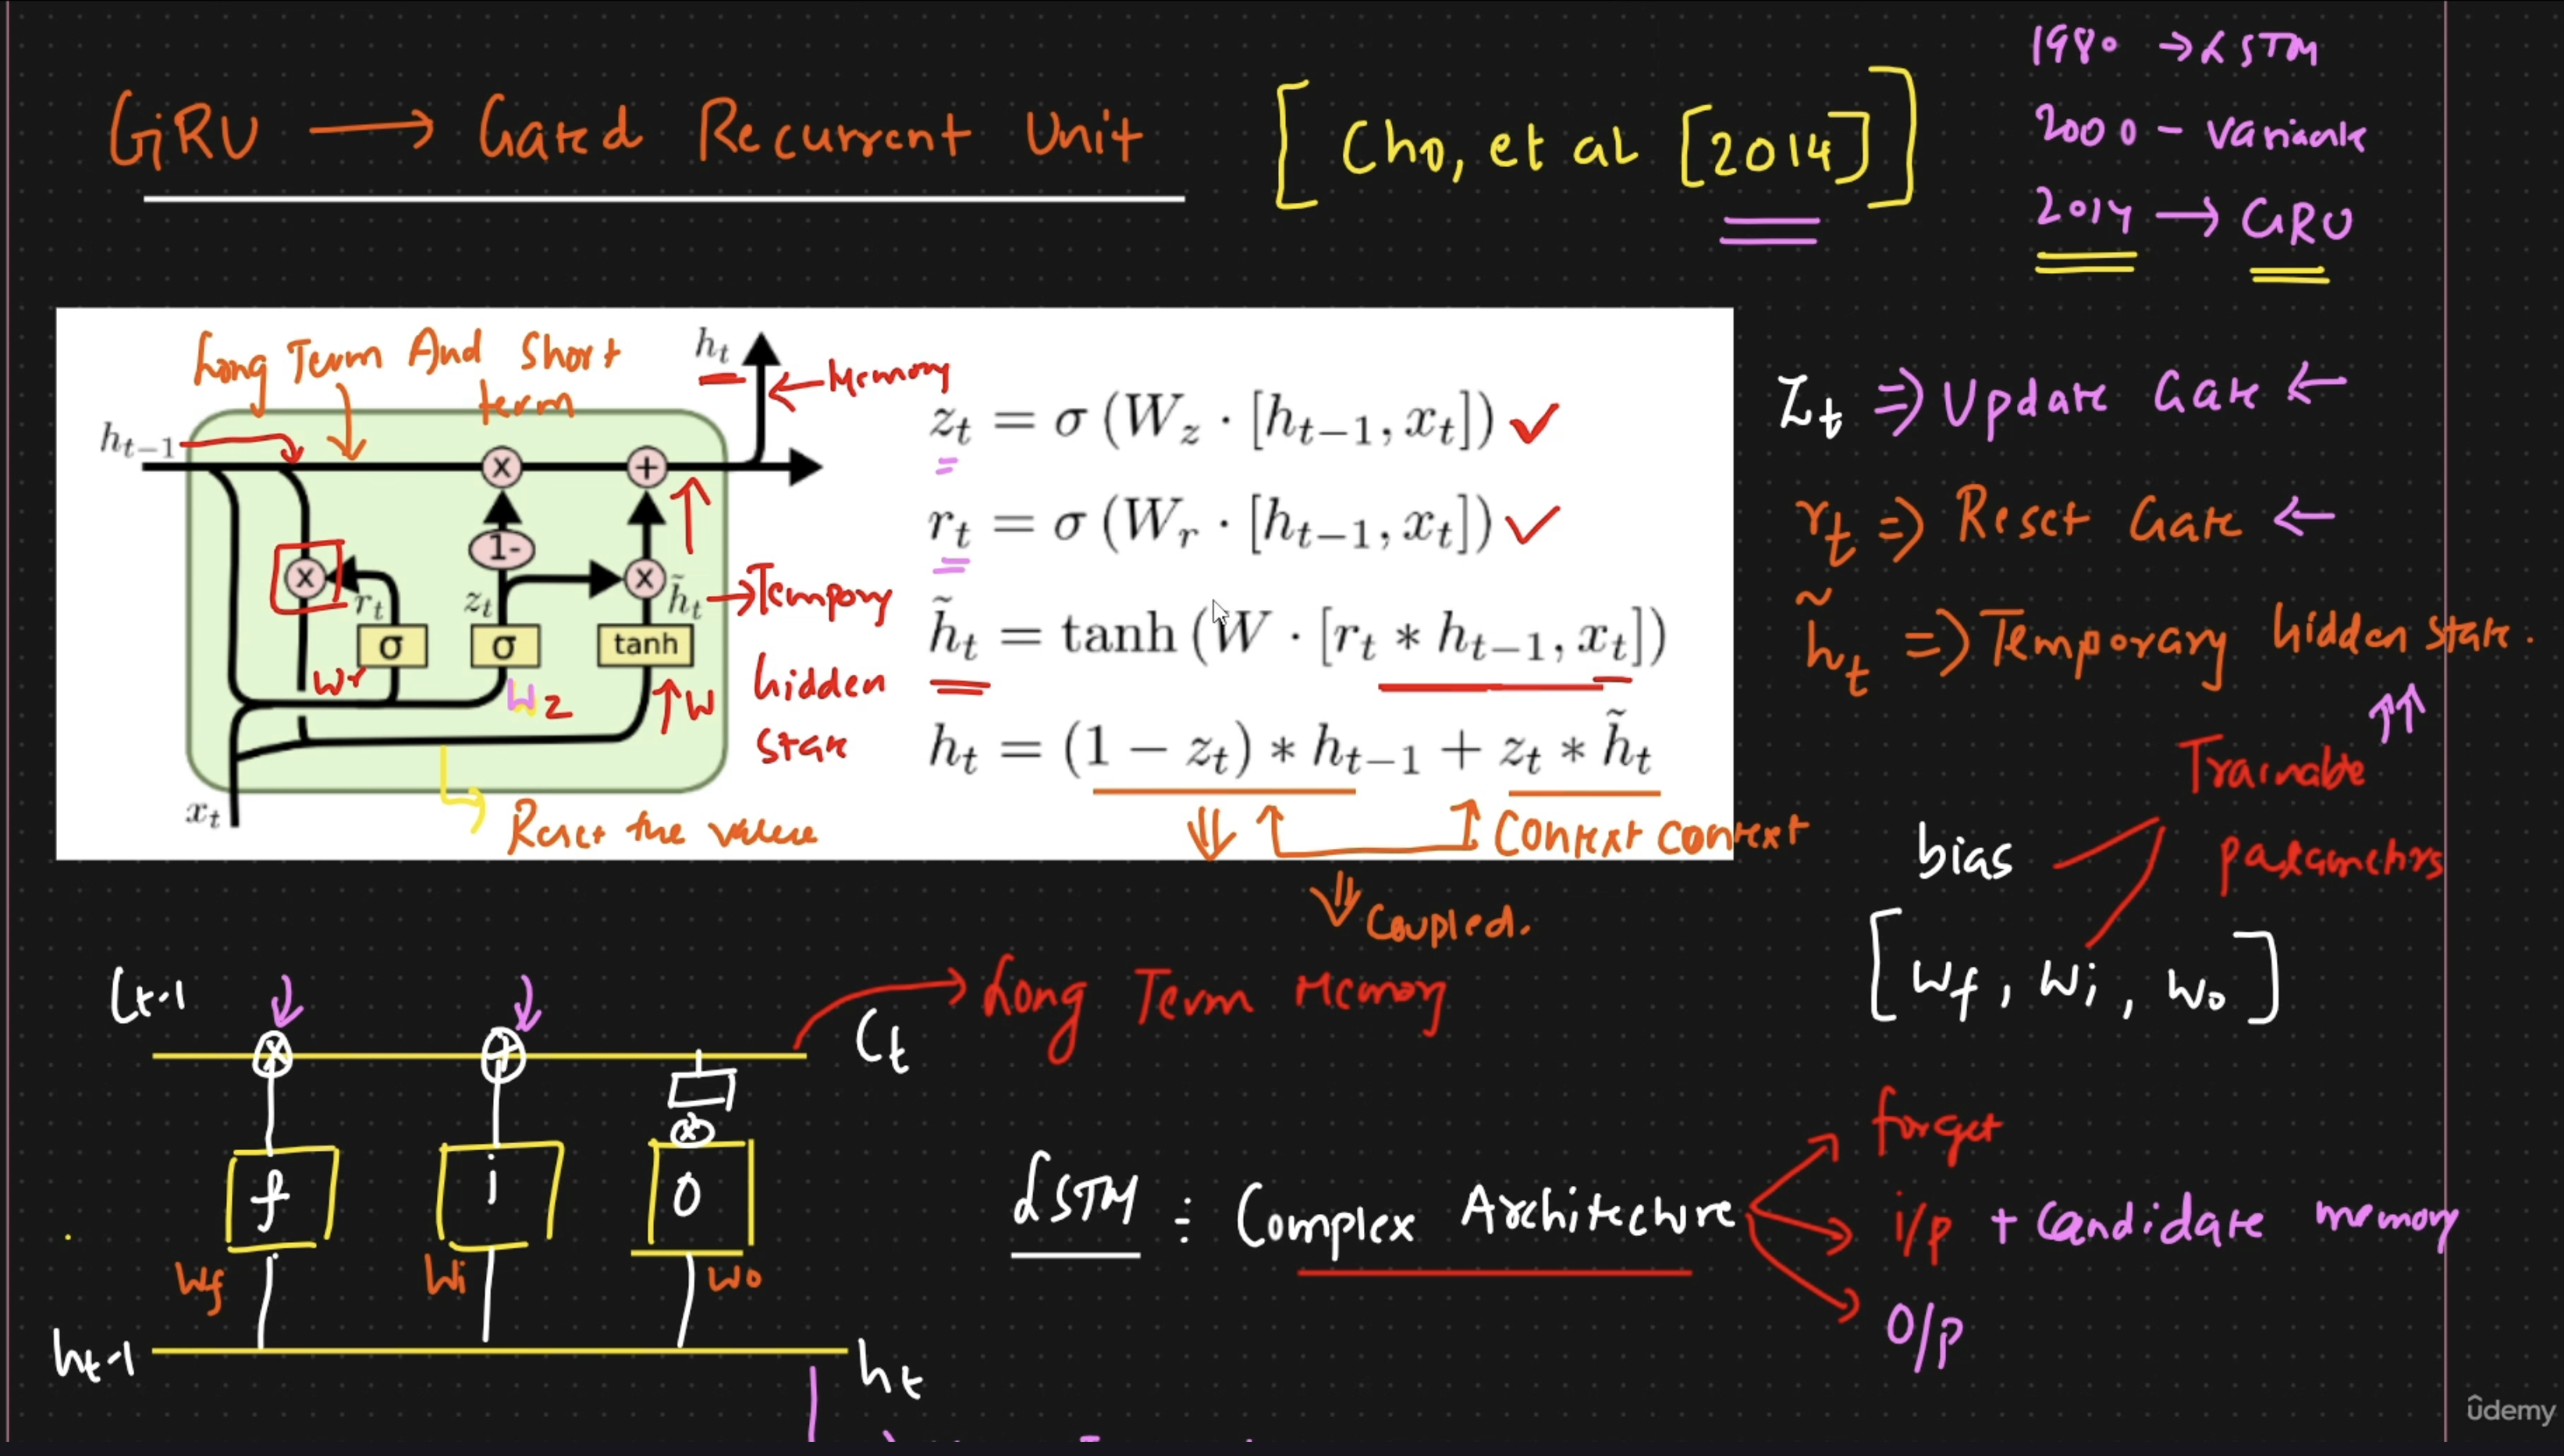 GRU → Gated Recurrent Unit
[Cho, et al [2014]]
1980 → LSTM
2000 - Variants
2014 → GRU
Long Term And Short
term
h_t
← Memory
h_{t-1}
r_t
z_t
h̃_t
→ Tempory
hidden
state
x
+
x
1-
x
σ
σ
tanh
Wr
Wz
W
x_t
Reset the value
z_t = σ (W_z · [h_{t-1}, x_t]) ✓
r_t = σ (W_r · [h_{t-1}, x_t]) ✓
h̃_t = tanh (W · [r_t * h_{t-1}, x_t])
h_t = (1 − z_t) * h_{t-1} + z_t * h̃_t
Context context
Coupled.
Z_t ⇒ Update Gate ←
r_t ⇒ Reset Gate ←
h̃_t ⇒ Temporary hidden state.
Trainable
parameters
bias
[Wf, Wi, Wo]
C_{t-1}
C_t
→ Long Term Memory
x
+
x
f
i
O
Wf
Wi
Wo
h_{t-1}
h_t
LSTM : Complex Architecture
forget
i/p + Candidate memory
O/p
ûdemy